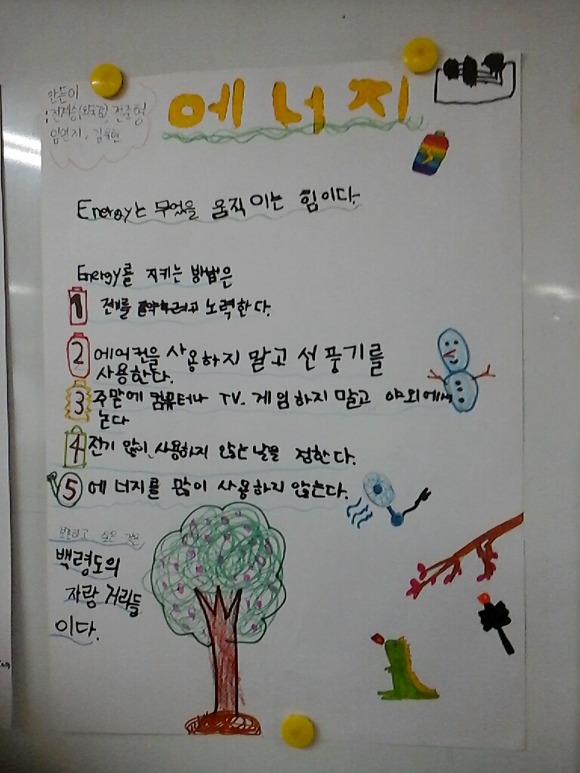 만든이
에너지
Energy는 무엇을 움직이는 힘이다.
Energy를 지키는 방법은
1 전기를 절약하려고 노력한다.
2 에어컨을 사용하지 말고 선풍기를
사용한다.
3 주말에 컴퓨터나 TV. 게임하지 말고 야외에서
논다
4 전기 많이 사용하지 않는 날을 정한다.
5 에너지를 많이 사용하지 않는다.
싶은 것은
백령도의
자랑거리들
이다.